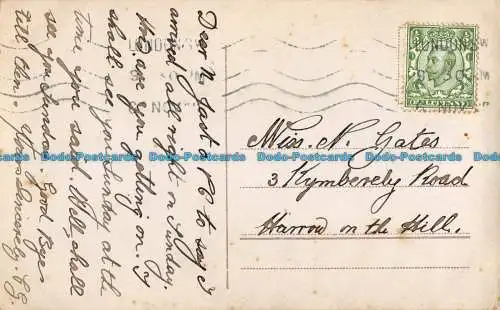 Dear N. Just a PC to say I
arrived all right on Tuesday.
How are you getting on. I
shall see you Sunday at the
time you said. Well shall
see you Sunday. Good Byee
till then. Yours Sincerely. E.G.
LONDON S.W
LONDON S.W
Miss. N. Gates
3 Kymberely Road
Harrow on the Hill.
Dodo-Postcards Dodo-Postcards Dodo-Postcards Dodo-Postcards